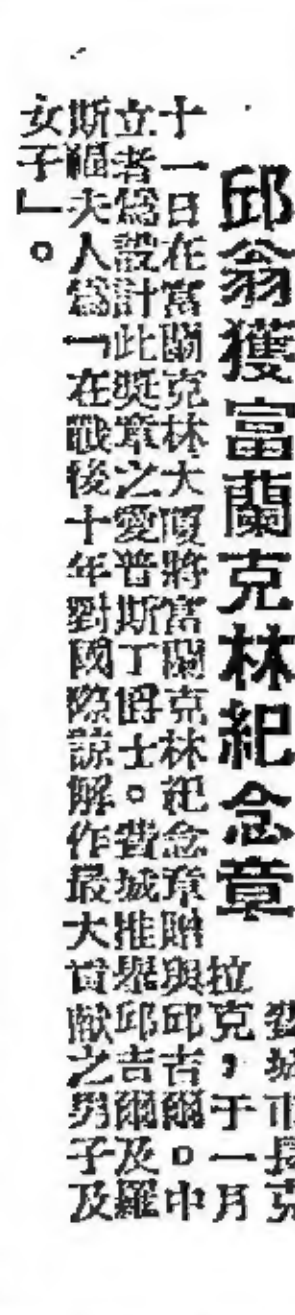 邱翁獲富蘭克林紀念章
費城市長克
拉克,于一月
十一日在富蘭克林大廈將富蘭克林紀念章贈與邱吉爾。中
立者爲設計此獎章之愛普斯丁爵士。費城推舉邱吉爾及羅
斯福夫人爲「在戰後十年對國際諒解作最大貢獻之男子及
女子」。